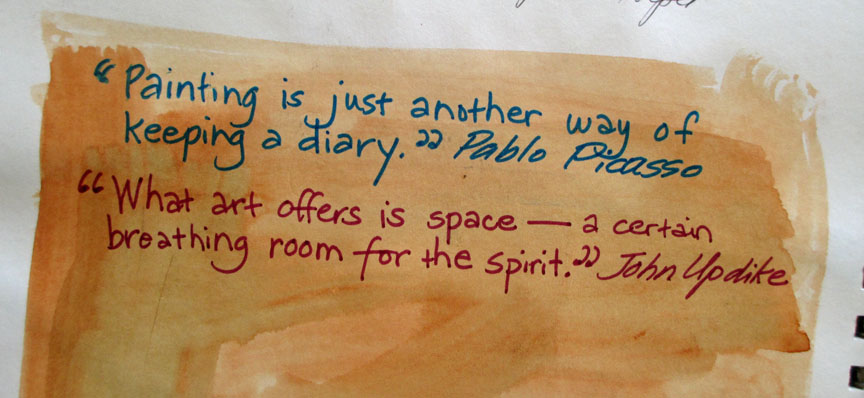 “Painting is just another way of
keeping a diary.” Pablo Picasso
“What art offers is space — a certain
breathing room for the spirit.” John Updike